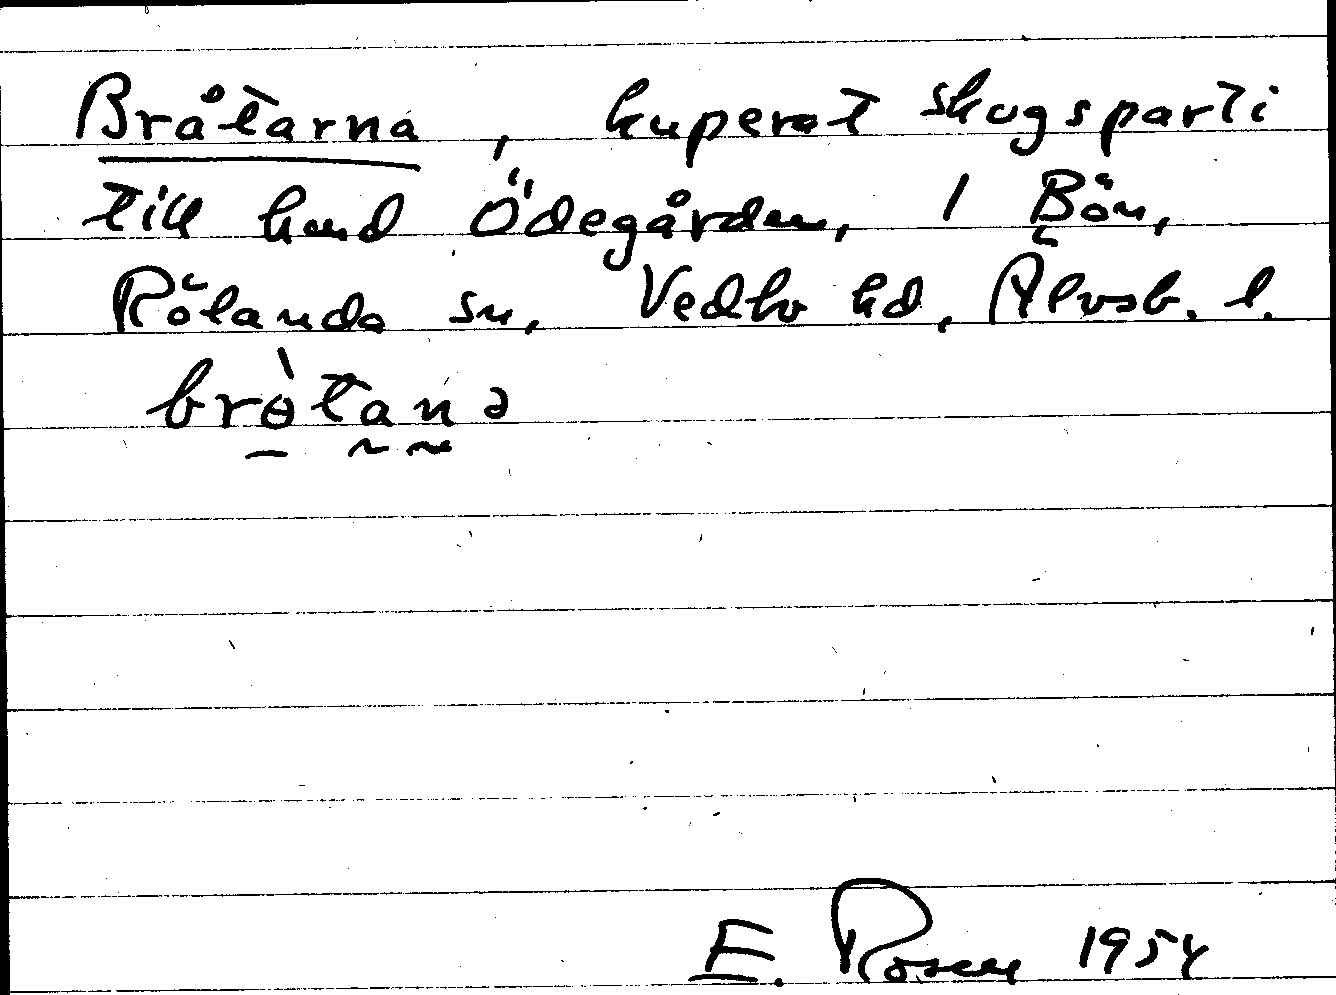 Bråtarna, kuperat skogsparti
till hmd Ödegården, 1 Bön,
Rölanda sn, Vedbo hd, Älvsb. l.
brɵ̀tanə
E. Rosen 1954